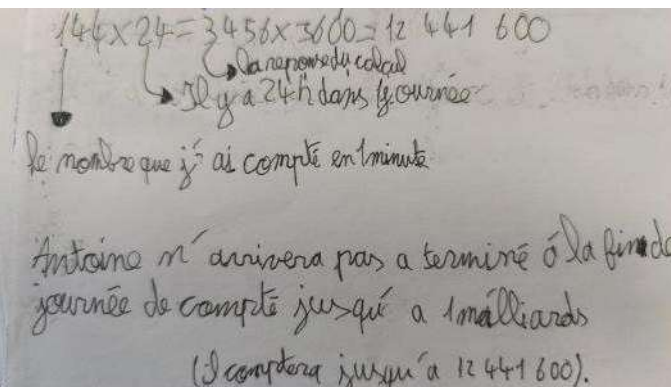 144x24=3456x3600=12 441 600
la reponse du calcul
Il y a 24h dans 1 journée
le nombre que j'ai compté en 1 minute
Antoine n'arrivera pas a terminé à la fin de
journée de compté jusqu'a 1 milliards
(Il comptera jusqu'a 12 441 600).